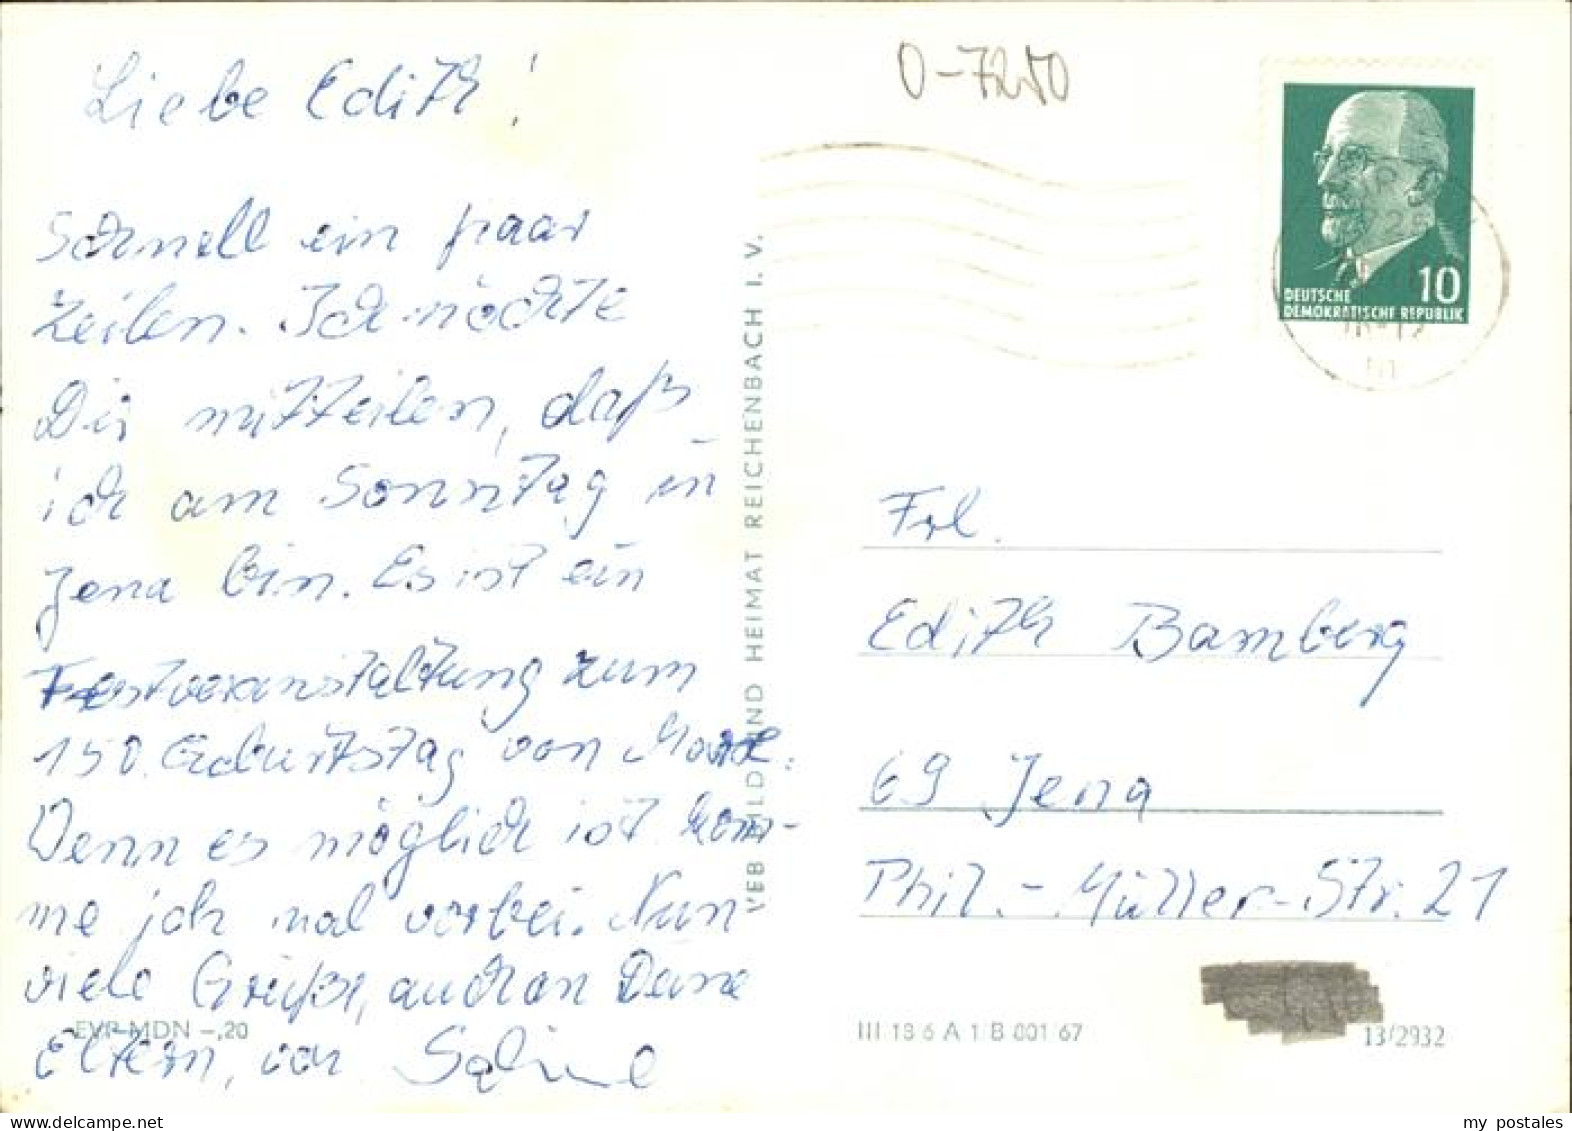 Liebe Edith!
Schnell ein paar
Zeilen. Ich möchte
Dir mitteilen, daß
ich am Sonntag in
Jena bin. Es ist ein
Festveranstaltung zum
150. Geburtstag von Marx.
Wenn es möglich ist kom-
me ich mal vorbei. Nun
viele Grüße, auch an Deine
Eltern, von Sabine
EVP MDN -,20
VEB BILD UND HEIMAT REICHENBACH I. V.
0-7250
DEUTSCHE 10
DEMOKRATISCHE REPUBLIK
Frl.
Edith Bamberg
69 Jena
Phil.-Müller-Str. 21
III 18 6 A 1 B 001 67
13/2932
my postales